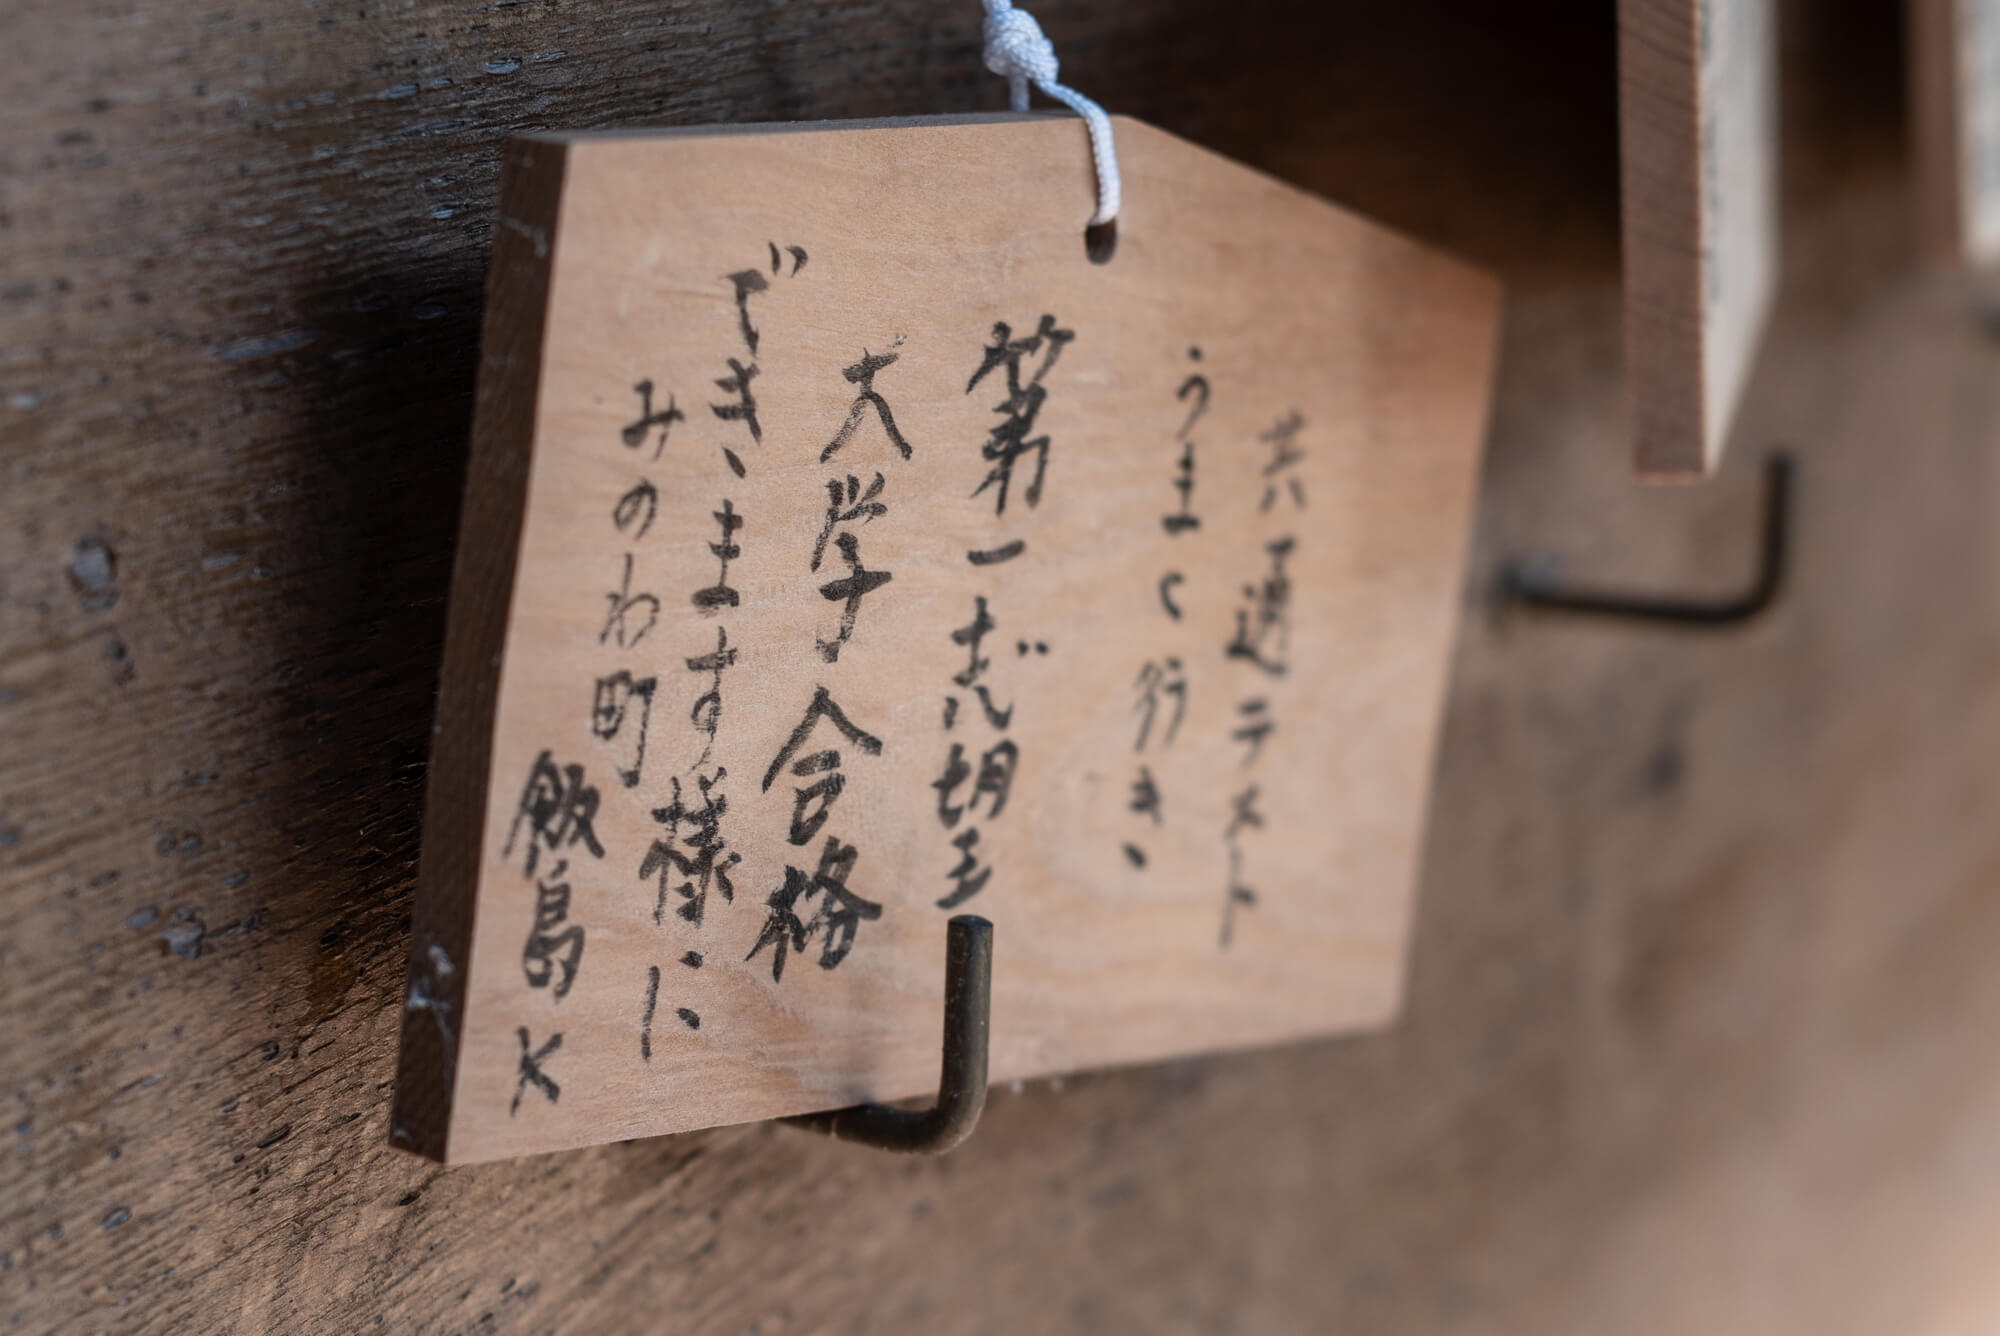 共通テスト
うまく行き、
第一志望
大学合格
でき、ます様に
みのわ町
飯島K